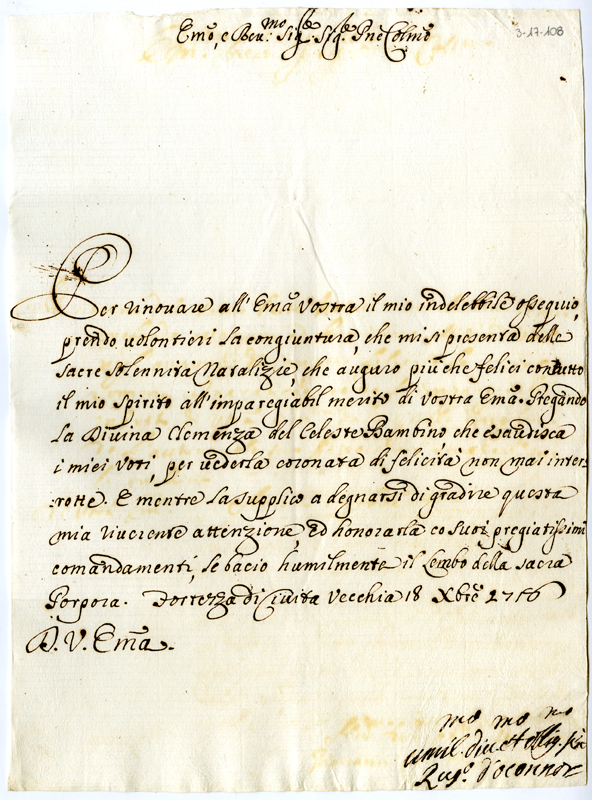 3-17-108
Em̃o, e Reu.mo Sig.re Sig.re Pne Colmo
Per rinouare all' Emã Vostra il mio indelebile ossequio,
prendo uolontieri la congiuntura, che mi si presenta delle
sacre solennità Natalizie, che auguro più che felici con tutto
il mio spirito all' imparegiabil merito di Vostra Emã. Pregando
la Diuina Clemenza del Celeste Bambino, che esaudisca
i miei voti, per uederla coronata di felicità non mai inter
rotte. E mentre la supplico a degnarsi di gradire questa
mia riuerente attenzione, ed honorarla co suoi pregiatissimi
comandamenti, le bacio humilmente il lembo della sacra
Porpora. Fortezza di Ciuita Vecchia 18 Xbrẽ 1716
D. V. Emã.
mo mo mo
umil. diu. et obblig.
d'oconnor